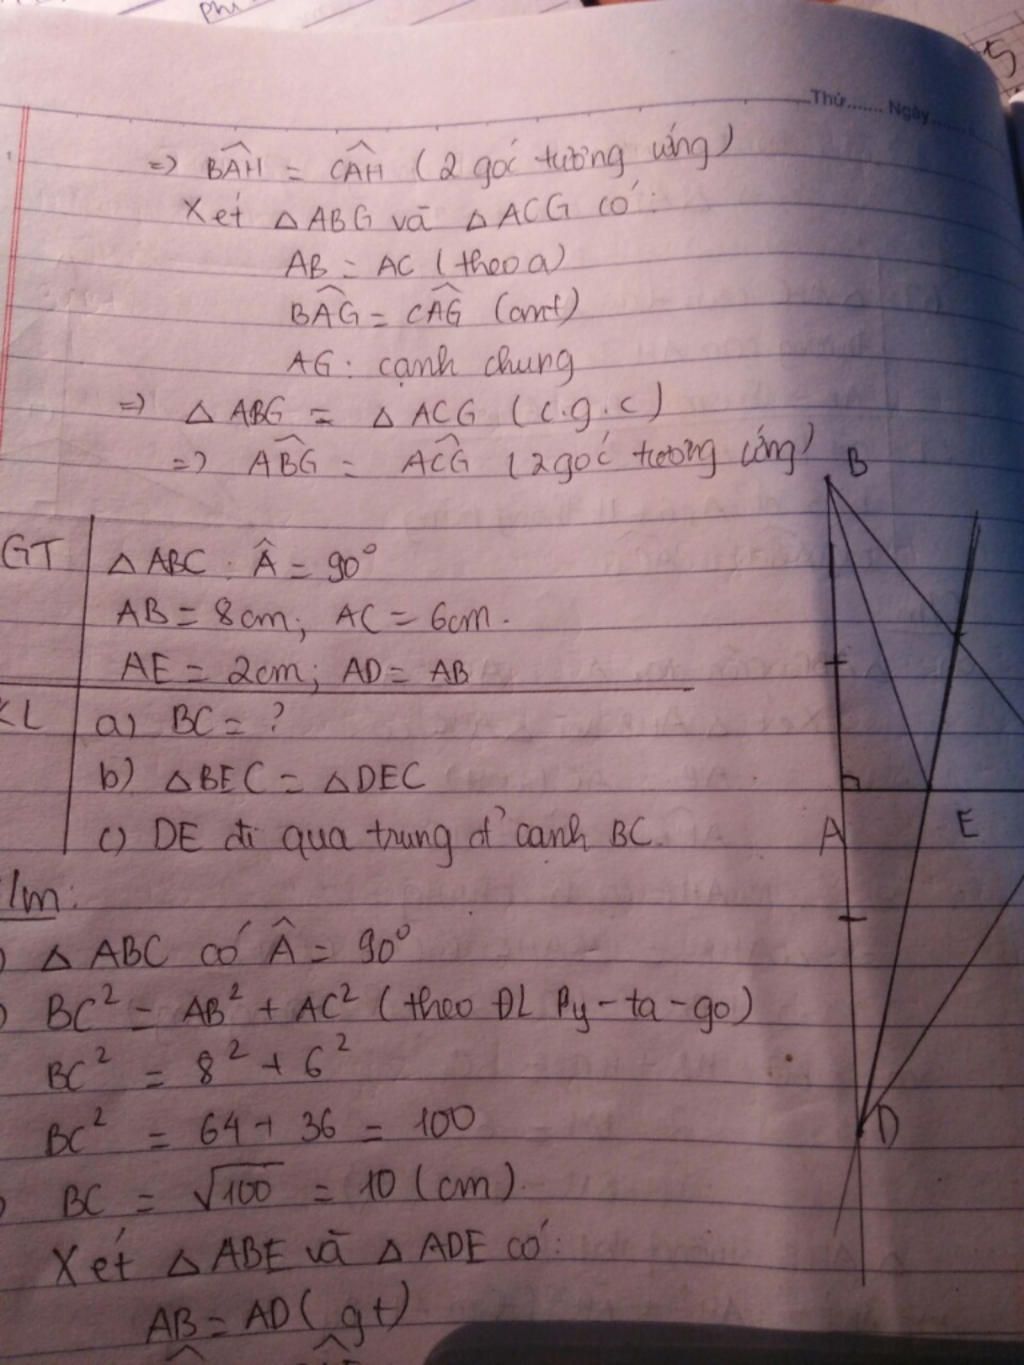 Phi
5
Thứ....... Ngày.......
=> BAH = CAH (2 góc tương ứng)
Xét △ABG và △ACG có:
AB = AC (theo a)
BAG = CAG (cmt)
AG: cạnh chung
=> △ABG = △ACG (c.g.c)
=> ABG = ACG (2 góc tương ứng)
B
GT
△ABC: Â = 90°
AB = 8cm; AC = 6cm.
AE = 2cm; AD = AB
KL
a) BC = ?
b) △BEC = △DEC
c) DE đi qua trung đ' cạnh BC.
A
E
D
△ABC có Â = 90°
BC² = AB² + AC² (theo ĐL Py-ta-go)
BC² = 8² + 6²
BC² = 64 + 36 = 100
BC = √100 = 10 (cm).
Xét △ABE và △ADE có:
AB = AD (gt)